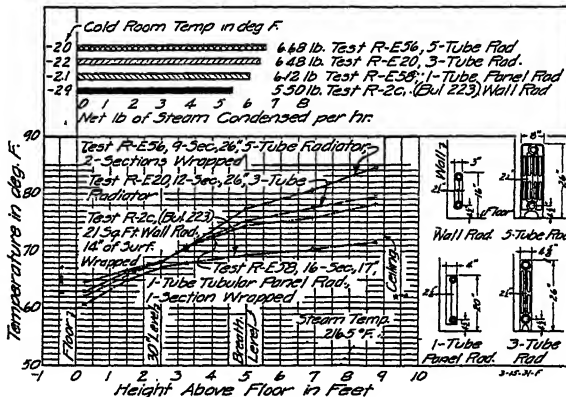 Cold Room Temp in deg F.
-2.0
6.68 lb. Test R-E56, 5-Tube Rad
-2.2
6.48 lb. Test R-E20, 3-Tube Rad.
-2.1
6.12 lb. Test R-E58, 1-Tube, Panel Rad
-2.9
5.50 lb. Test R-2c, (Bul 223) Wall Rad
0 1 2 3 4 5 6 7 8
Net lb of Steam Condensed per hr.
Temperature in deg F.
90
80
70
60
50
Test R-E56, 9-Sec, 26", 5-Tube Radiator
2-Sections Wrapped
Test R-E20, 12-Sec, 26", 3-Tube
Radiator
Test R-2c, (Bul 223)
21 Sq. Ft Wall Rad,
14" of Surf.
Wrapped
Test R-E58, 16-Sec, 17",
1-Tube Tubular Panel Rad.,
1-Section Wrapped
Steam Temp.
216.5 °F.
Floor
30" Level
Breath.
Level
Ceiling
-1 0 1 2 3 4 5 6 7 8 9 10
Height Above Floor in Feet
Wall
3"
16"
4½"
Floor
Wall Rad.
8"
5-Tube Rad
4"
20"
1-Tube
Panel Rad.
26"
4½"
3-Tube
Rad
3-15-31-F